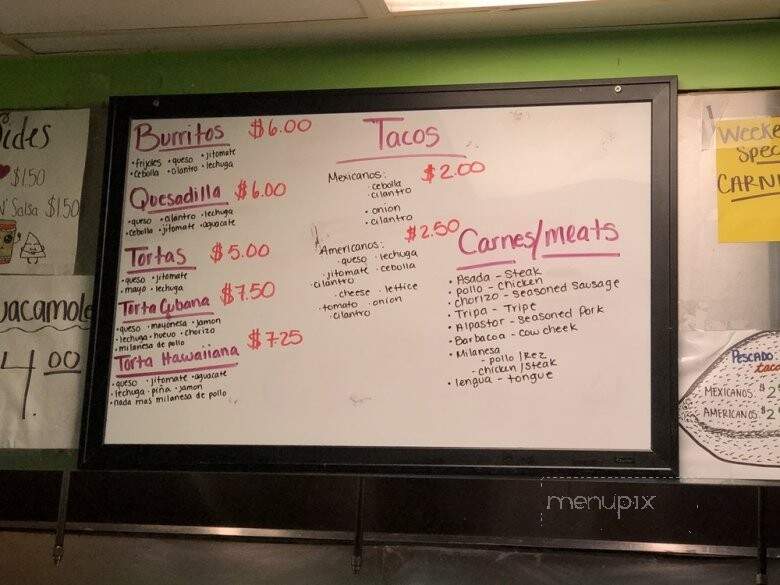 ides
$1.50
N' Salsa $1.50
uacamol
4.00
Burritos $6.00
• frijoles • queso • jitomate
• cebolla • cilantro • lechuga
Quesadilla $6.00
• queso • cilantro • lechuga
• cebolla • jitomate • aguacate
Tortas $5.00
• queso • jitomate
• mayo • lechuga
Torta Cubana $7.50
• queso • mayonesa • jamon
• lechuga • huevo • chorizo
• milanesa de pollo
Torta Hawaiiana $7.25
• queso • jitomate • aguacate
• lechuga • piña • jamon
• nada mas milanesa de pollo
Tacos
Mexicanos: $2.00
• cebolla
• cilantro
• onion
• cilantro
Americanos: $2.50
• queso • lechuga
• jitomate • cebolla
• cilantro
• cheese • lettice
• tomato • onion
• cilantro
Carnes/meats
• Asada - Steak
• pollo - chicken
• chorizo - Seasoned Sausage
• Tripa - Tripe
• Alpastor - Seasoned Pork
• Barbacoa - Cow cheek
• Milanesa
- pollo / Rez
- chicken / steak
• lengua - tongue
Weeke
Spec
CARNI
PESCADO
taco
MEXICANOS: $2
AMERICANOS $2
menupix